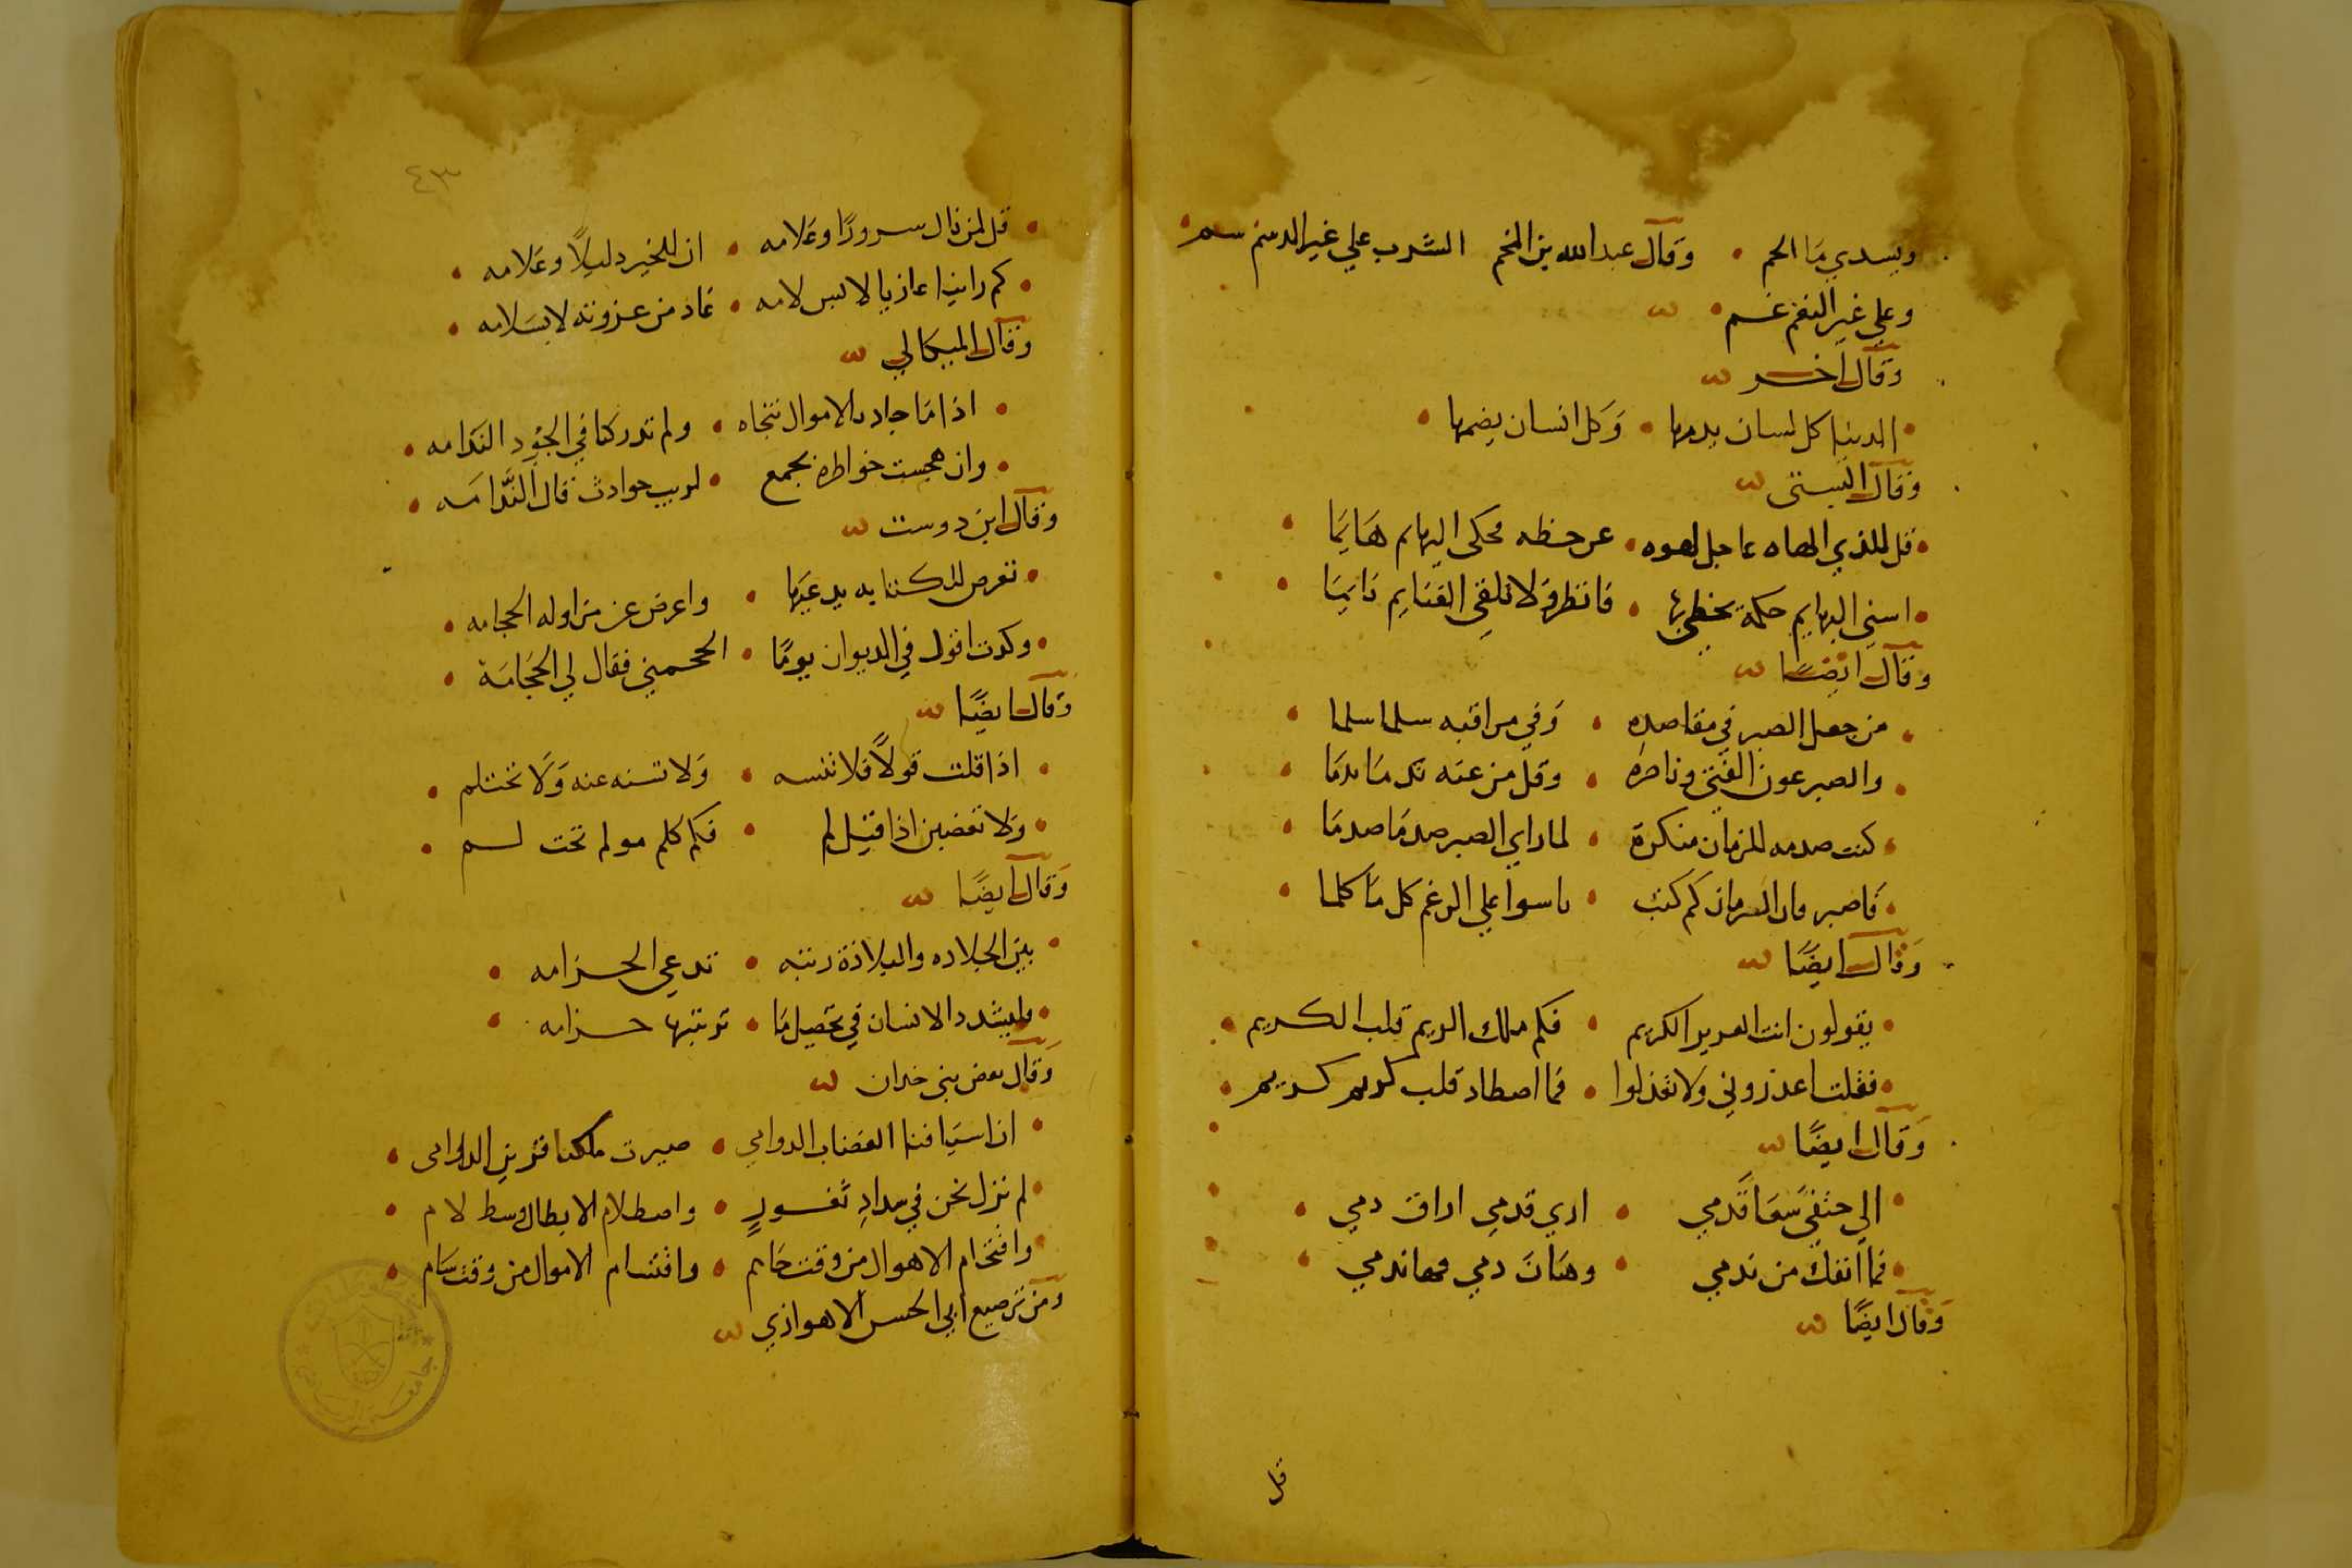 ويسدي ما الحم • وقال عبد الله بن المخم الشرب علي غير الدسم سم •
وعلي غير النغم غم •
وقال اخر
• الدنيا كل لسان يدمها • وكل انسان يضمها •
وقال البستي
• قل للذي الهاه عاجل لهوه • عن حظه محكي البهايم هايما •
• اسني البهايم حكمة يخطي بها • فانظر لا تلقي الغنايم نايما •
وقال ايضا
• من جعل الصبر في مقاصده • وفي مراقبه سلما سلما •
• والصبر عون الفتي وناصره • وقل من عنه ندما ندما •
• كنت صدمه للزمان منكرة • لما راي الصبر صدما صدما •
• فاصبر فان الزمان كم كنت • ناسوا علي الرغم كل ما كلما •
وقال ايضا
• يقولون انت العزيز الكريم • فكم ملك الريم قلب الكريم •
• فقلت اعذروني ولا تعذلوا • فما اصطاد قلب كريم كريم •
وقال ايضا
• الي حتفي سعا قدمي • اري قدمي اراق دمي •
• فما انفك من ندمي • وهان دمي فها ندمي •
وقال ايضا
قل
٤٣
• قل لمن نال سرورا وعلامه • ان للخير دليلا وعلامه •
• كم راينا عازيا لابس لامه • عاد من عزوته لا بسلامه •
وقال الميكالي
• اذا ما جاد بالاموال نتجاه • ولم تدركنا في الجود الندامه •
• وان هجست خواطره بجمع • لريب حوادث قال الندامه •
وقال ابن دوست
• تعرض للكتابه يدعيها • واعرض عن مزاوله الحجامه •
• وكدت اقول في الديوان يوما • احجمني فقال لي الحجامة •
وقال ايضا
• اذا قلت قولا فلا تنسه • ولا تسنه عنه ولا تختلم •
• ولا تغضبن اذا قيل لم • فكم كلم مولم تحت لم •
وقال ايضا
• بين الجلاده والبلادة رتبه • تدعي الحزامه •
• وليشدد الانسان في تحصيل ما • ترتيبها حزامه •
وقال بعض بني خدان
• ان اسيافنا العضاب الدوامي • صيرت ملكنا قرين الدوامي •
• لم نزل نحن في سداد ثغور • واصطلام الابطال وسط لام •
• واقتحام الاهوال من وقت حام • واقتسام الاموال من وقت سام •
ومن ترصيع ابي الحسن الاهوازي